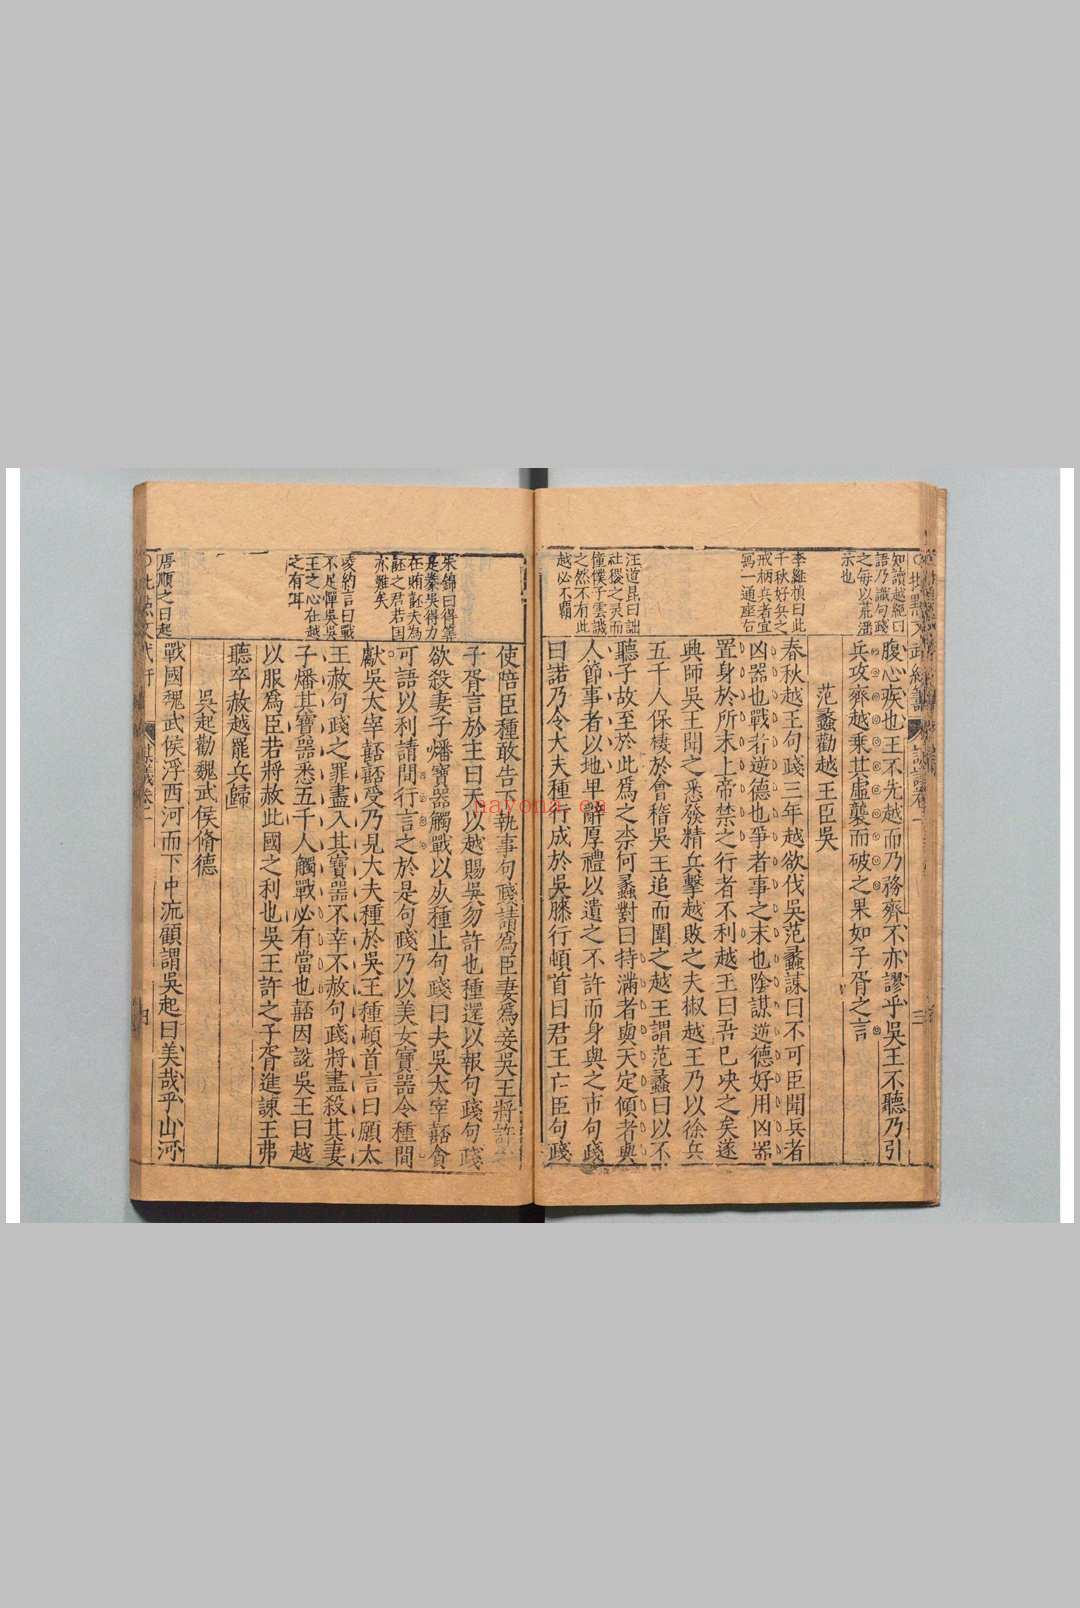 知讀越絕曰
語乃識句踐
之每以荒淫
示也
李維楨曰此
千秋好兵之
戒柄兵者宜
寫一通座右
汪道昆曰詘
社稷之灵而
僮僕子雲譏
之然不有此
越必不覇
腹心疾也王不先越而乃務齊不亦謬乎吳王不聽乃引
兵攻齊越乗其虛襲而破之果如子胥之言
范蠡勸越王臣吳
春秋越王句踐三年越欲伐吳范蠡諫曰不可臣聞兵者
凶器也戰者逆德也爭者事之末也陰謀逆德好用凶器
置身於所末上帝禁之行者不利越王曰吾已决之矣遂
興師吳王聞之悉發精兵擊越敗之夫椒越王乃以徐兵
五千人保棲於會稽吳王追而圍之越王謂范蠡曰以不
聽子故至於此爲之柰何蠡對曰持滿者與天定傾者與
人節事者以地卑辭厚禮以遺之不許而身與之市句踐
曰諾乃令大夫種行成於吳膝行頓首曰君王亡臣句踐
朱錦曰得筭
是豢吳得力
在賄嚭夫為
嚭之君若国
亦難矣
凌約言曰戰
不足憚吳吳
王之心在越
之有耳
唐順之曰起
使陪臣種敢告下執事句踐請爲臣妻爲妾吳王將許之
子胥言於王曰天以越賜吳勿許也種還以報句踐句踐
欲殺妻子燔寶器觸戰以死種止句踐曰夫吳太宰嚭貪
可語以利請間行言之於是句踐乃以美女寶器令種間
獻吳太宰嚭嚭受乃見大夫種於吳王種頓首言曰願大
王赦句踐之罪盡入其寶器不幸不赦句踐將盡殺其妻
子燔其寶器悉五千人觸戰必有當也嚭因說吳王曰越
以服爲臣若將赦此國之利也吳王許之子胥進諫王弗
聽卒赦越罷兵歸
吳起勸魏武侯脩德
戰國魏武侯浮西河而下中流顧謂吳起曰美哉乎山河